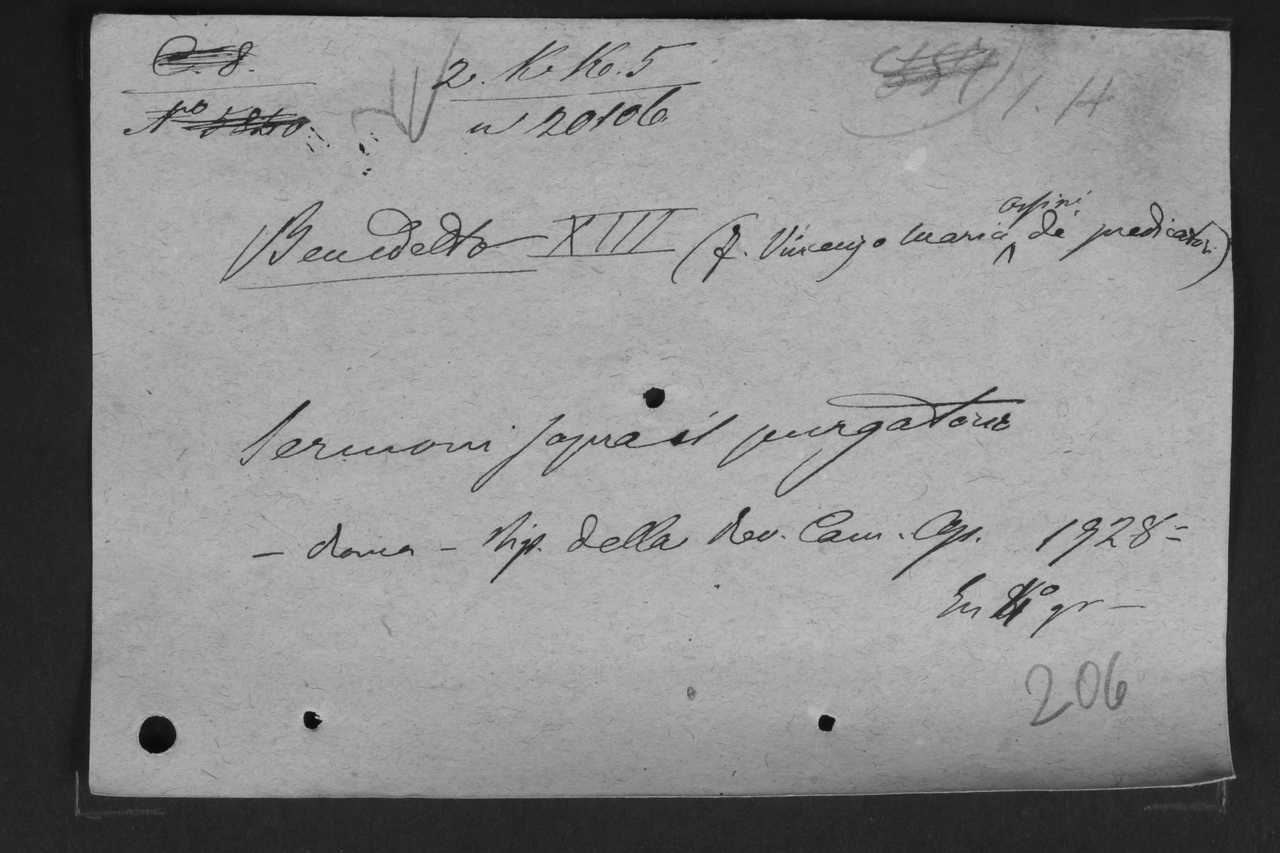 C. 8.
2. K. Ko. 5
1. H
Nº 5840
n 20106
Benedetto XIII (F. Vincenzo Maria Orsini de' predicatori)
Sermoni sopra il purgatorio
– Roma – Tip. della Rev. Cam. Ap. 1928 =
In 4º gr –
206